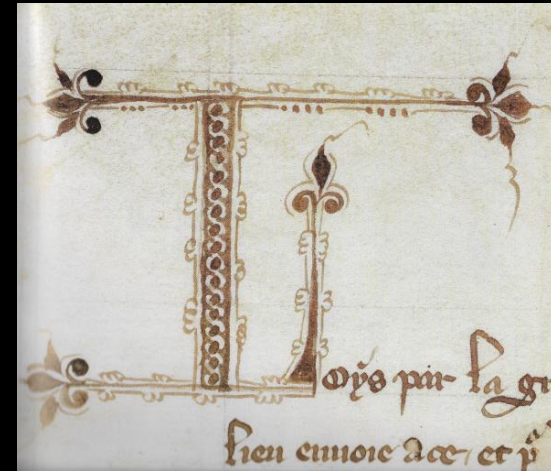 Loys par la gr
lieu enuoie a ce et p